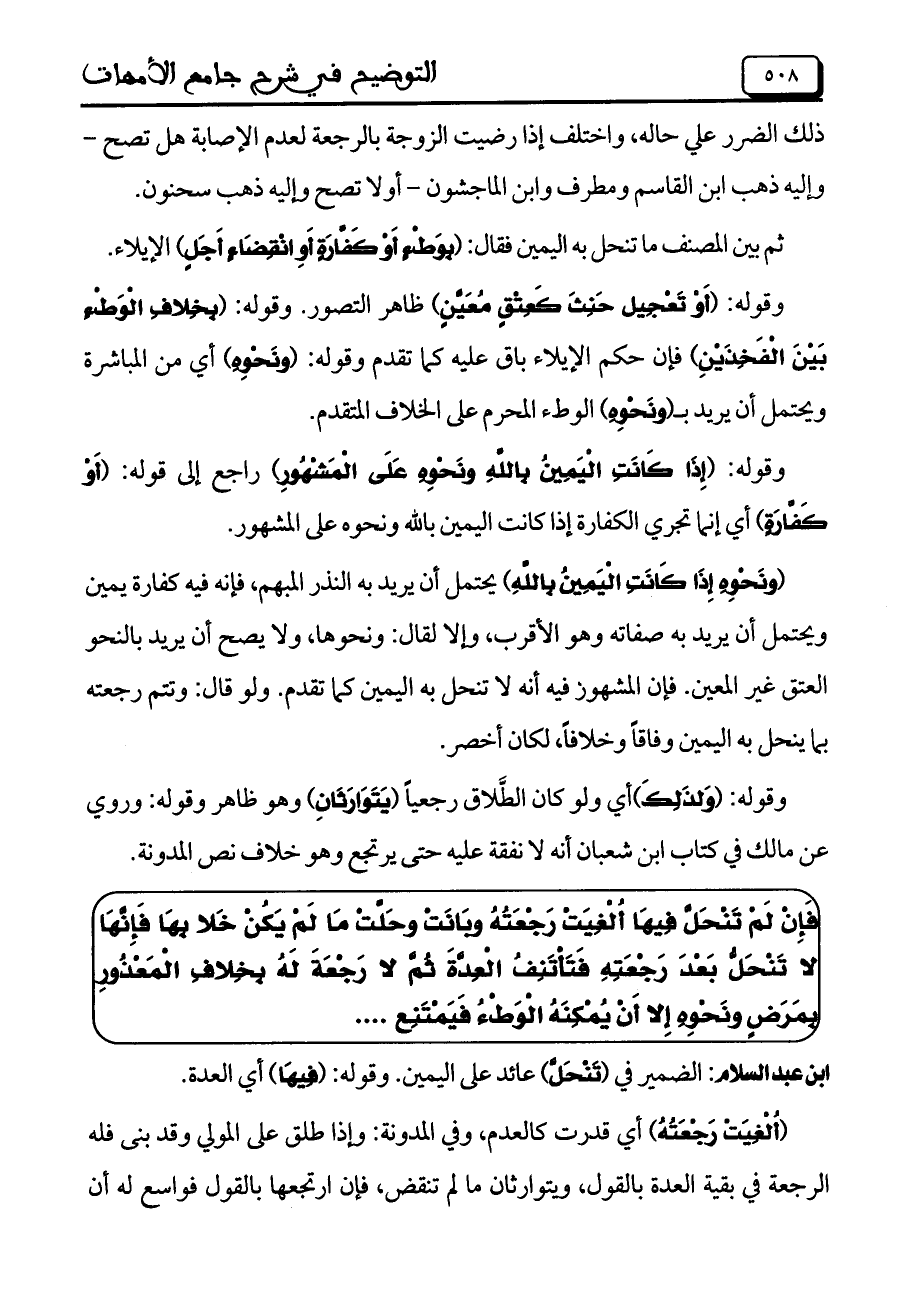 ٥٠٨
التوضيح في شرح جامع الأمهات
ذلك الضرر علي حاله، واختلف إذا رضيت الزوجة بالرجعة لعدم الإصابة هل تصح –
وإليه ذهب ابن القاسم ومطرف وابن الماجشون – أولا تصح وإليه ذهب سحنون.
ثم بين المصنف ما تنحل به اليمين فقال: (بِوَطْءٍ أَوْ كَفَّارَةٍ أَوِ انْقِضَاءِ أَجَلِ) الإيلاء.
وقوله: (أَوْ تَعْجِيل حَنِثَ كَعِتْقٍ مُعَيَّنٍ) ظاهر التصور. وقوله: (بِخِلافِ الْوَطْءِ
بَيْنَ الْفَخِذَيْنِ) فإن حكم الإيلاء باق عليه كما تقدم وقوله: (ونَحْوِهِ) أي من المباشرة
ويحتمل أن يريد بـ(ونَحْوِهِ) الوطء المحرم على الخلاف المتقدم.
وقوله: (إِذَا كَانَتِ الْيَمِينُ بِاللَّهِ ونَحْوِهِ عَلَى الْمَشْهُورِ) راجع إلى قوله: (أَوْ
كَفَّارَةٍ) أي إنما تجري الكفارة إذا كانت اليمين بالله ونحوه على المشهور.
(ونَحْوِهِ إِذَا كَانَتِ الْيَمِينُ بِاللَّهِ) يحتمل أن يريد به النذر المبهم، فإنه فيه كفارة يمين
ويحتمل أن يريد به صفاته وهو الأقرب، وإلا لقال: ونحوها، ولا يصح أن يريد بالنحو
العتق غير المعين. فإن المشهوز فيه أنه لا تنحل به اليمين كما تقدم. ولو قال: وتتم رجعته
بما ينحل به اليمين وفاقاً وخلافاً، لكان أخصر.
وقوله: (وَلذَلِكَ)أي ولو كان الطَّلاق رجعياً (يَتَوَارَثَانِ) وهو ظاهر وقوله: وروي
عن مالك في كتاب ابن شعبان أنه لا نفقة عليه حتى يرتجع وهو خلاف نص المدونة.
فَإِنْ لَمْ تَنْحَلَّ فِيهَا أُلْغِيَتْ رَجْعَتُهُ وبَانَتْ وحَلَّتْ مَا لَمْ يَكُنْ خَلا بِهَا فَإِنَّهَا
لا تَنْحَلُّ بَعْدَ رَجْعَتِهِ فَتَأْتَنِفُ الْعِدَّةَ ثُمَّ لا رَجْعَةَ لَهُ بِخِلافِ الْمَعْذُورِ
بِمَرَضٍ ونَحْوِهِ إِلا أَنْ يُمْكِنَهُ الْوَطْءُ فَيَمْتَنِع ....
ابن عبد السلام: الضمير في (تَنْحَلَّ) عائد على اليمين. وقوله: (فِيهَا) أي العدة.
(أُلْغِيَتْ رَجْعَتُهُ) أي قدرت كالعدم، وفي المدونة: وإذا طلق على المولي وقد بنى فله
الرجعة في بقية العدة بالقول، ويتوارثان ما لم تنقض، فإن ارتجعها بالقول فواسع له أن